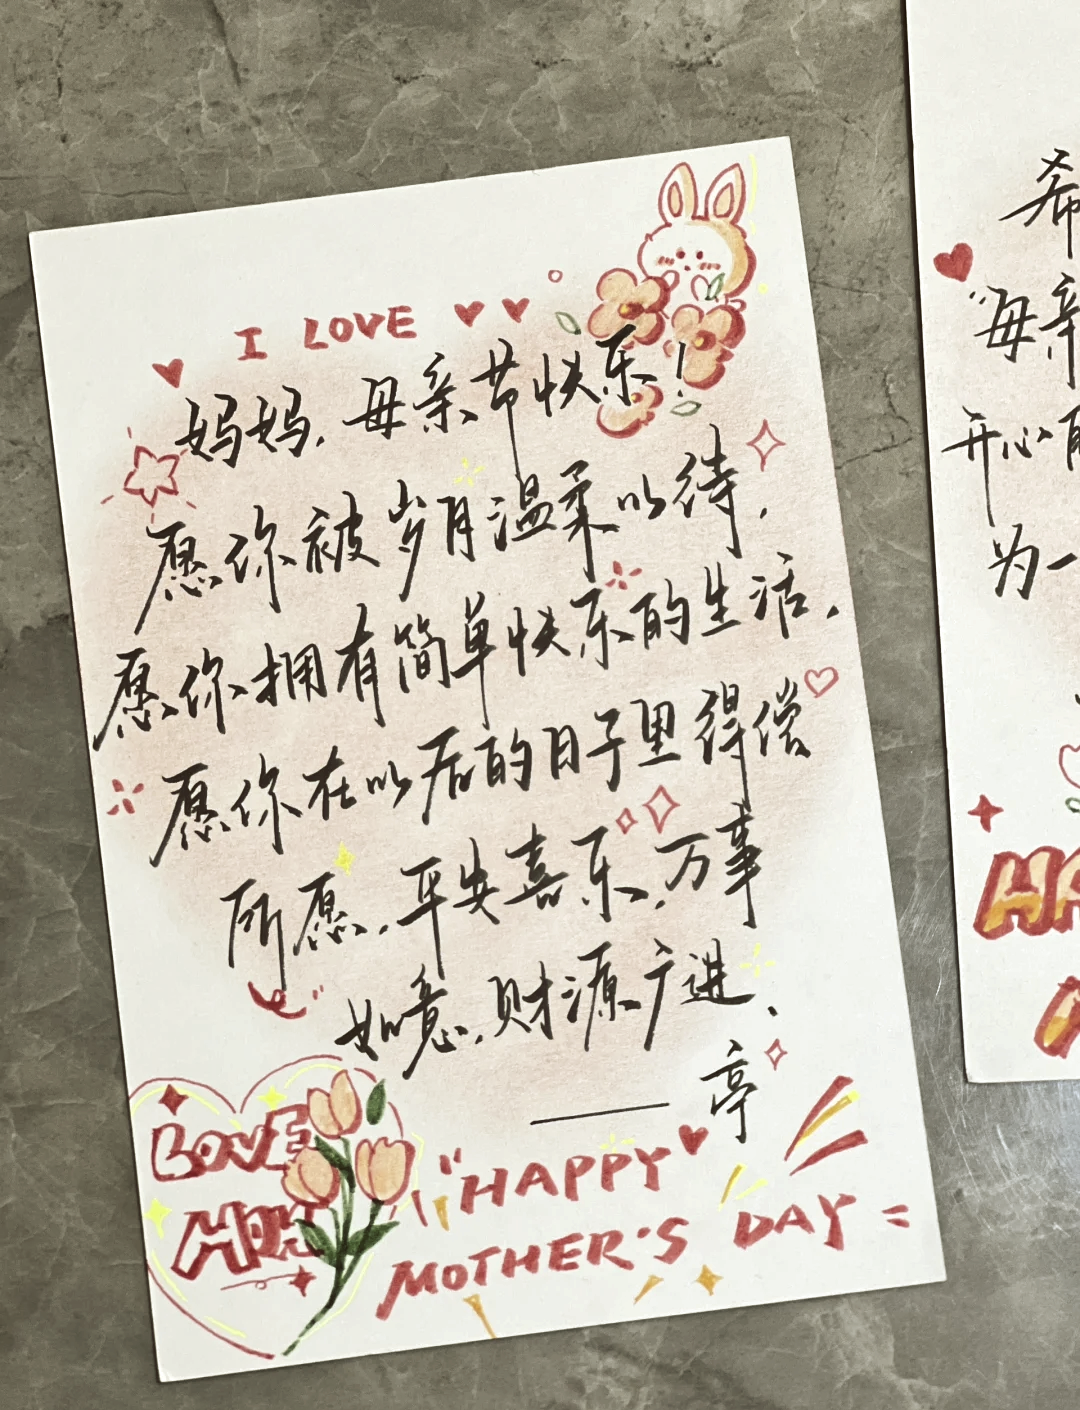 I LOVE
妈妈，母亲节快乐！
愿你被岁月温柔以待，
愿你拥有简单快乐的生活，
愿你在以后的日子里得偿
所愿，平安喜乐，万事
如意，财源广进、
—— 亭
LOVE
MOM
"HAPPY
MOTHER'S DAY
希
"母亲
开心
为一
HA